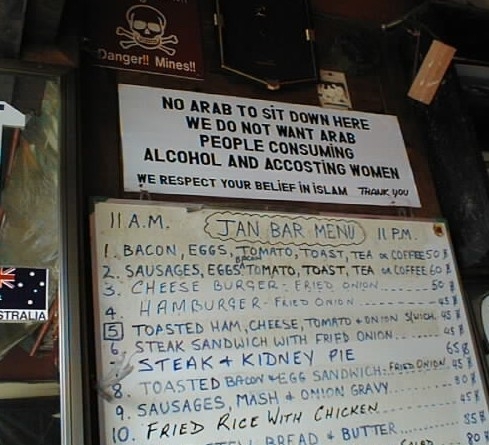 Danger!! Mines!!
NO ARAB TO SIT DOWN HERE
WE DO NOT WANT ARAB
PEOPLE CONSUMING
ALCOHOL AND ACCOSTING WOMEN
WE RESPECT YOUR BELIEF IN ISLAM THANK YOU
11 A.M. JAN BAR MENU 11 P.M.
1. BACON, EGGS, TOMATO, TOAST, TEA OR COFFEE 50 ฿
2. SAUSAGES, EGGS, BACON TOMATO, TOAST, TEA OR COFFEE 60 ฿
3. CHEESE BURGER - FRIED ONION 50 ฿
4. HAMBURGER - FRIED ONION 45 ฿
5 TOASTED HAM, CHEESE, TOMATO + ONION S/WICH. 45 ฿
6. STEAK SANDWICH WITH FRIED ONION 45 ฿
STEAK & KIDNEY PIE 65 ฿
8. TOASTED BACON & EGG SANDWICH. FRIED ONION. 45 ฿
9. SAUSAGES, MASH & ONION GRAVY 80 ฿
10. FRIED RICE WITH CHICKEN 45 ฿
BREAD & BUTTER 55 ฿
80
AUSTRALIA